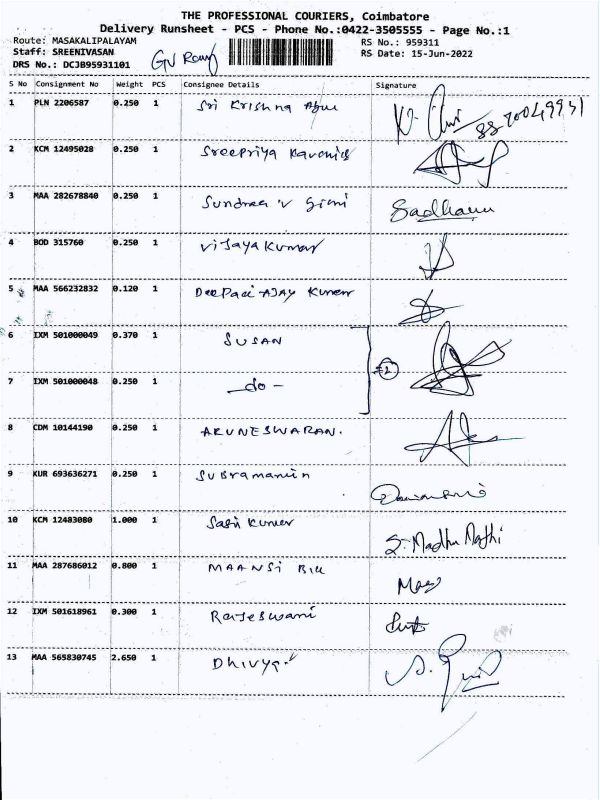 THE PROFESSIONAL COURIERS, Coimbatore
Delivery Runsheet - PCS - Phone No.:0422-3505555 - Page No.:1
Route: MASAKALIPALAYAM RS No.: 959311
Staff: SREENIVASAN RS Date: 15-Jun-2022
DRS No.: DCJB95931101
S No Consignment No Weight PCS Consignee Details Signature
1 PLN 2206587 0.250 1 Sri Krishna
2 KCM 12495028 0.250 1 Sreepriya
3 MAA 282678840 0.250 1 Sundraa V Giri Sadhana
4 BOD 315760 0.250 1 Vijaya Kumar
5 MAA 566232832 0.120 1 Deepaci AJAY Kumar
6 IXM 501000049 0.370 1 SUSAN
2
7 IXM 501000048 0.250 1 -do-
8 CDM 10144190 0.250 1 ARUNESWARAN.
9 KUR 693636271 0.250 1 Subramanin
10 KCM 12483080 1.000 1 Sasi Kumar S. Madhu Mathi
11 MAA 287686012 0.800 1 MAANSI
12 IXM 501618961 0.300 1 Rajeswari
13 MAA 565830745 2.650 1 Dhivya